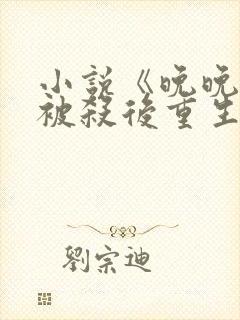 小說《晚晚
被殺後重生
劉宗迪